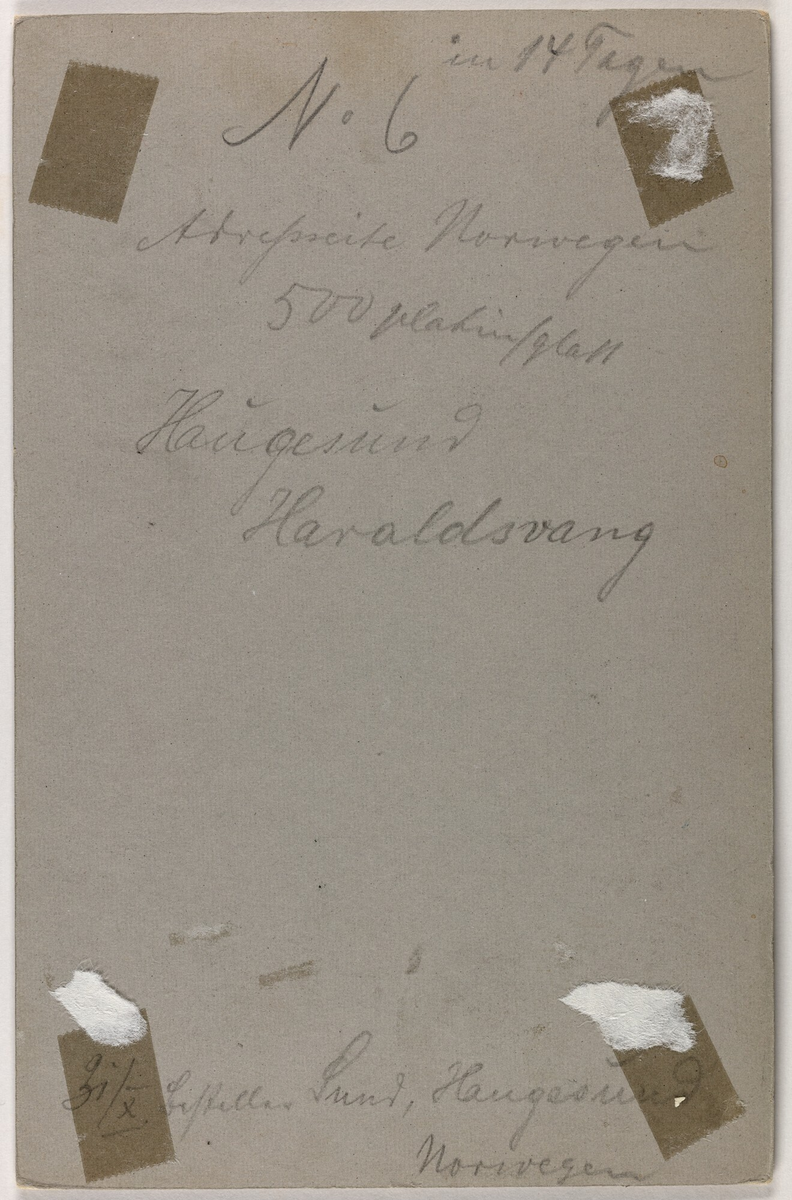 in 14 Tagen
N. 6
Adreßseite Norwegen
500 platin/glatt
Haugesund
Haraldsvang
31/X. Besteller Sund, Haugesund
Norwegen